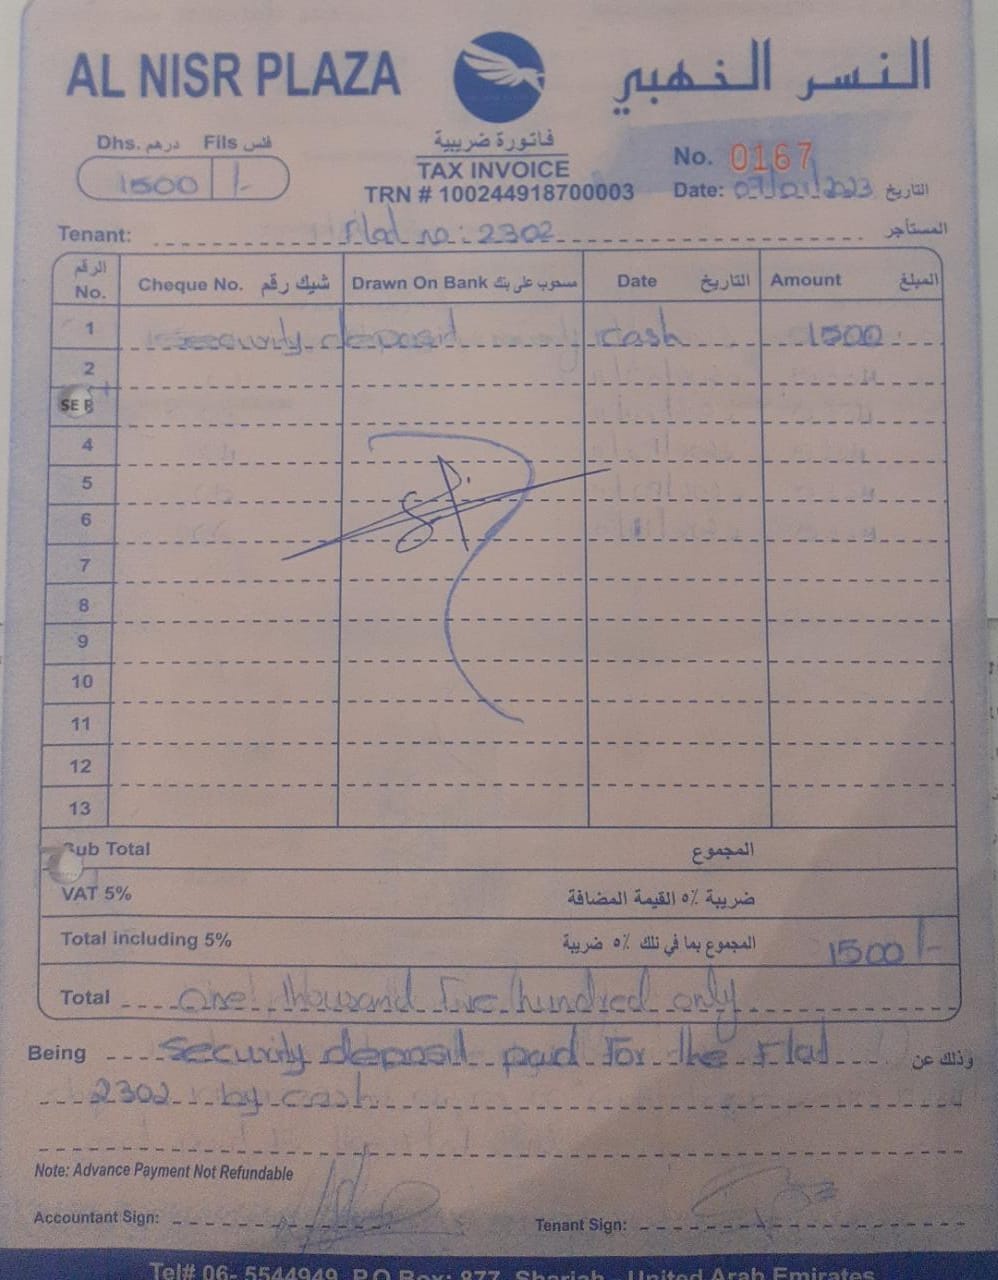 AL NISR PLAZA
النسر الذهبي
Dhs. درهم Fils فلس
1500 /-
فاتورة ضريبية
TAX INVOICE
TRN # 100244918700003
No. 0167
Date: 07/01/2023 التاريخ
Tenant: Flat no: 2302 المستأجر
الرقم No. Cheque No. شيك رقم Drawn On Bank مسحوب على بنك Date التاريخ Amount المبلغ
1 Security deposit cash 1500
2
SE B
4
5
6
7
8
9
10
11
12
13
Sub Total المجموع
VAT 5% ضريبة ٥٪ القيمة المضافة
Total including 5% المجموع بما في ذلك ٥٪ ضريبة 1500/-
Total One thousand Five hundred only
Being Security deposit paid For the Flat وذلك عن
2302 by cash
Note: Advance Payment Not Refundable
Accountant Sign: Tenant Sign:
Tel# 06- 5544949, P.O Box: 877, Sharjah - United Arab Emirates